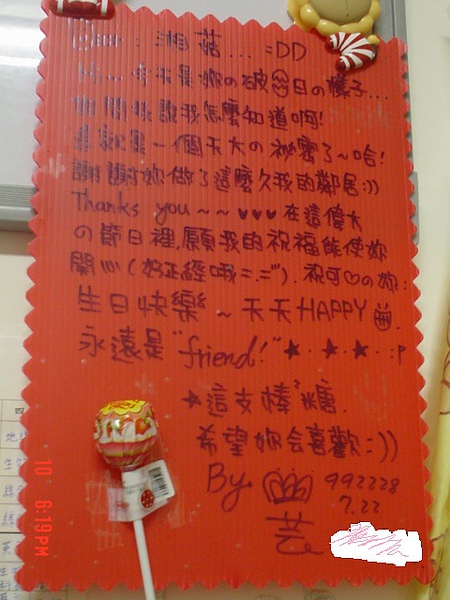 湘菇....=DD
Hi~今天是妳の破蛋日の樣子...
別問我說我怎麼知道啊!
這就是一個天大の祕密了~哈!
謝謝妳做了這麼久我的鄰居:))
Thanks you~~♥♥♥在這偉大
の節日裡,願我的祝福能使妳
開心(好正經哦=.="). 祝可♡の妳:
生日快樂~天天HAPPY
永遠是"friend!"★.★.★.:P
★這支棒棒糖.
希望妳会喜歡:))
By. 992228
7.22
10 6:19PM